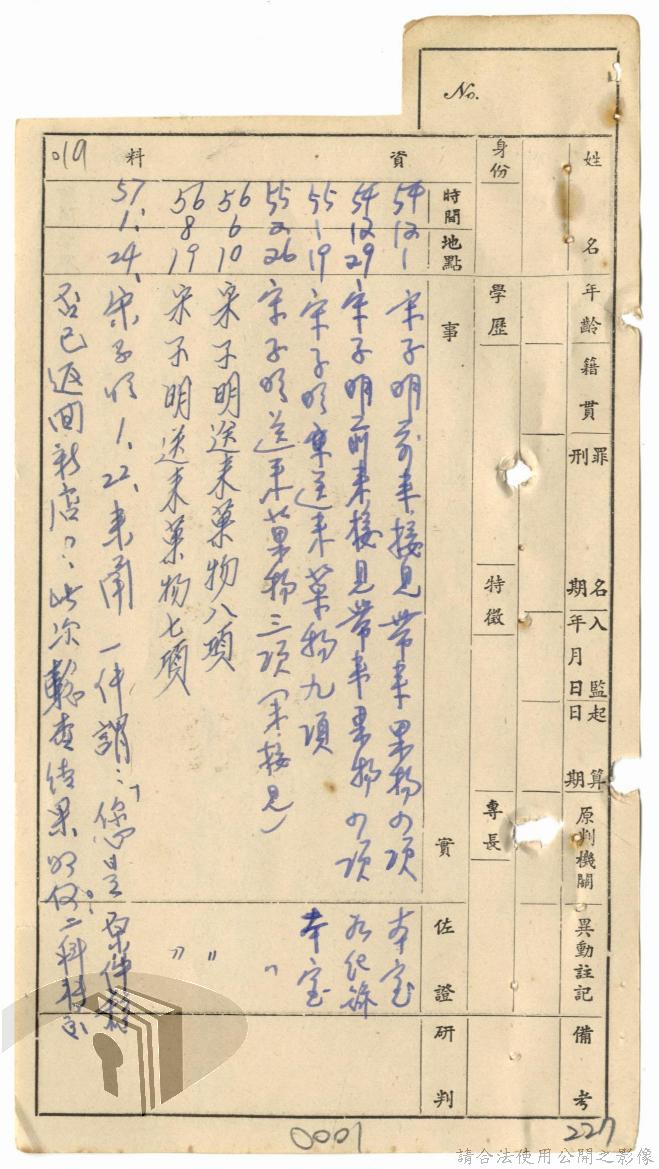 No.
姓名
年齡
籍貫
罪刑
名期
入監日
年月日
起算日期
原判機關
異動註記
備考
身份
學歷
特徵
專長
資料
時間
地點
事實
佐證
研判
019
54 12 1 宋子明前來接見帶來菓物四項 本室
54 12 29 宋子明前來接見帶來菓物四項 有紀錄
55 1 19 宋子明來送來菓物九項 本室
55 2 26 宋子明送來菓物三項(未接見) 〃
56 6 10 宋子明送來菓物八項 〃
56 8 19 宋子明送來菓物七項 〃
57. 1. 24. 宋子明1.22.來函一件謂:「您是
否已返回新店?此次 結果如何?
原件移
二科
0001
227
請合法使用公開之影像